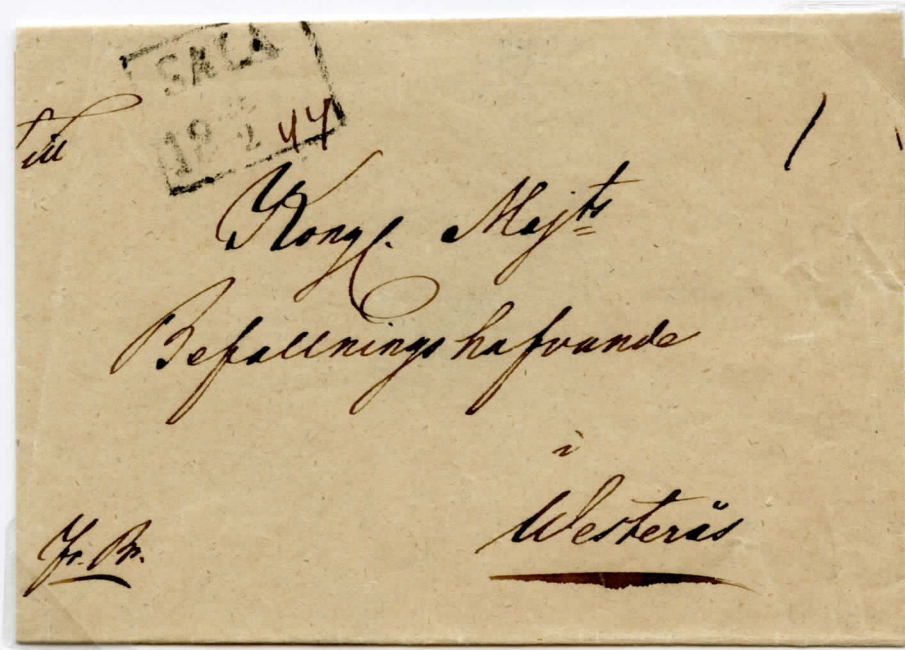 SALA
12 2 44
Till
1
Kongl. Majts
Befallningshafvande
i
Westerås
Fr. Br.